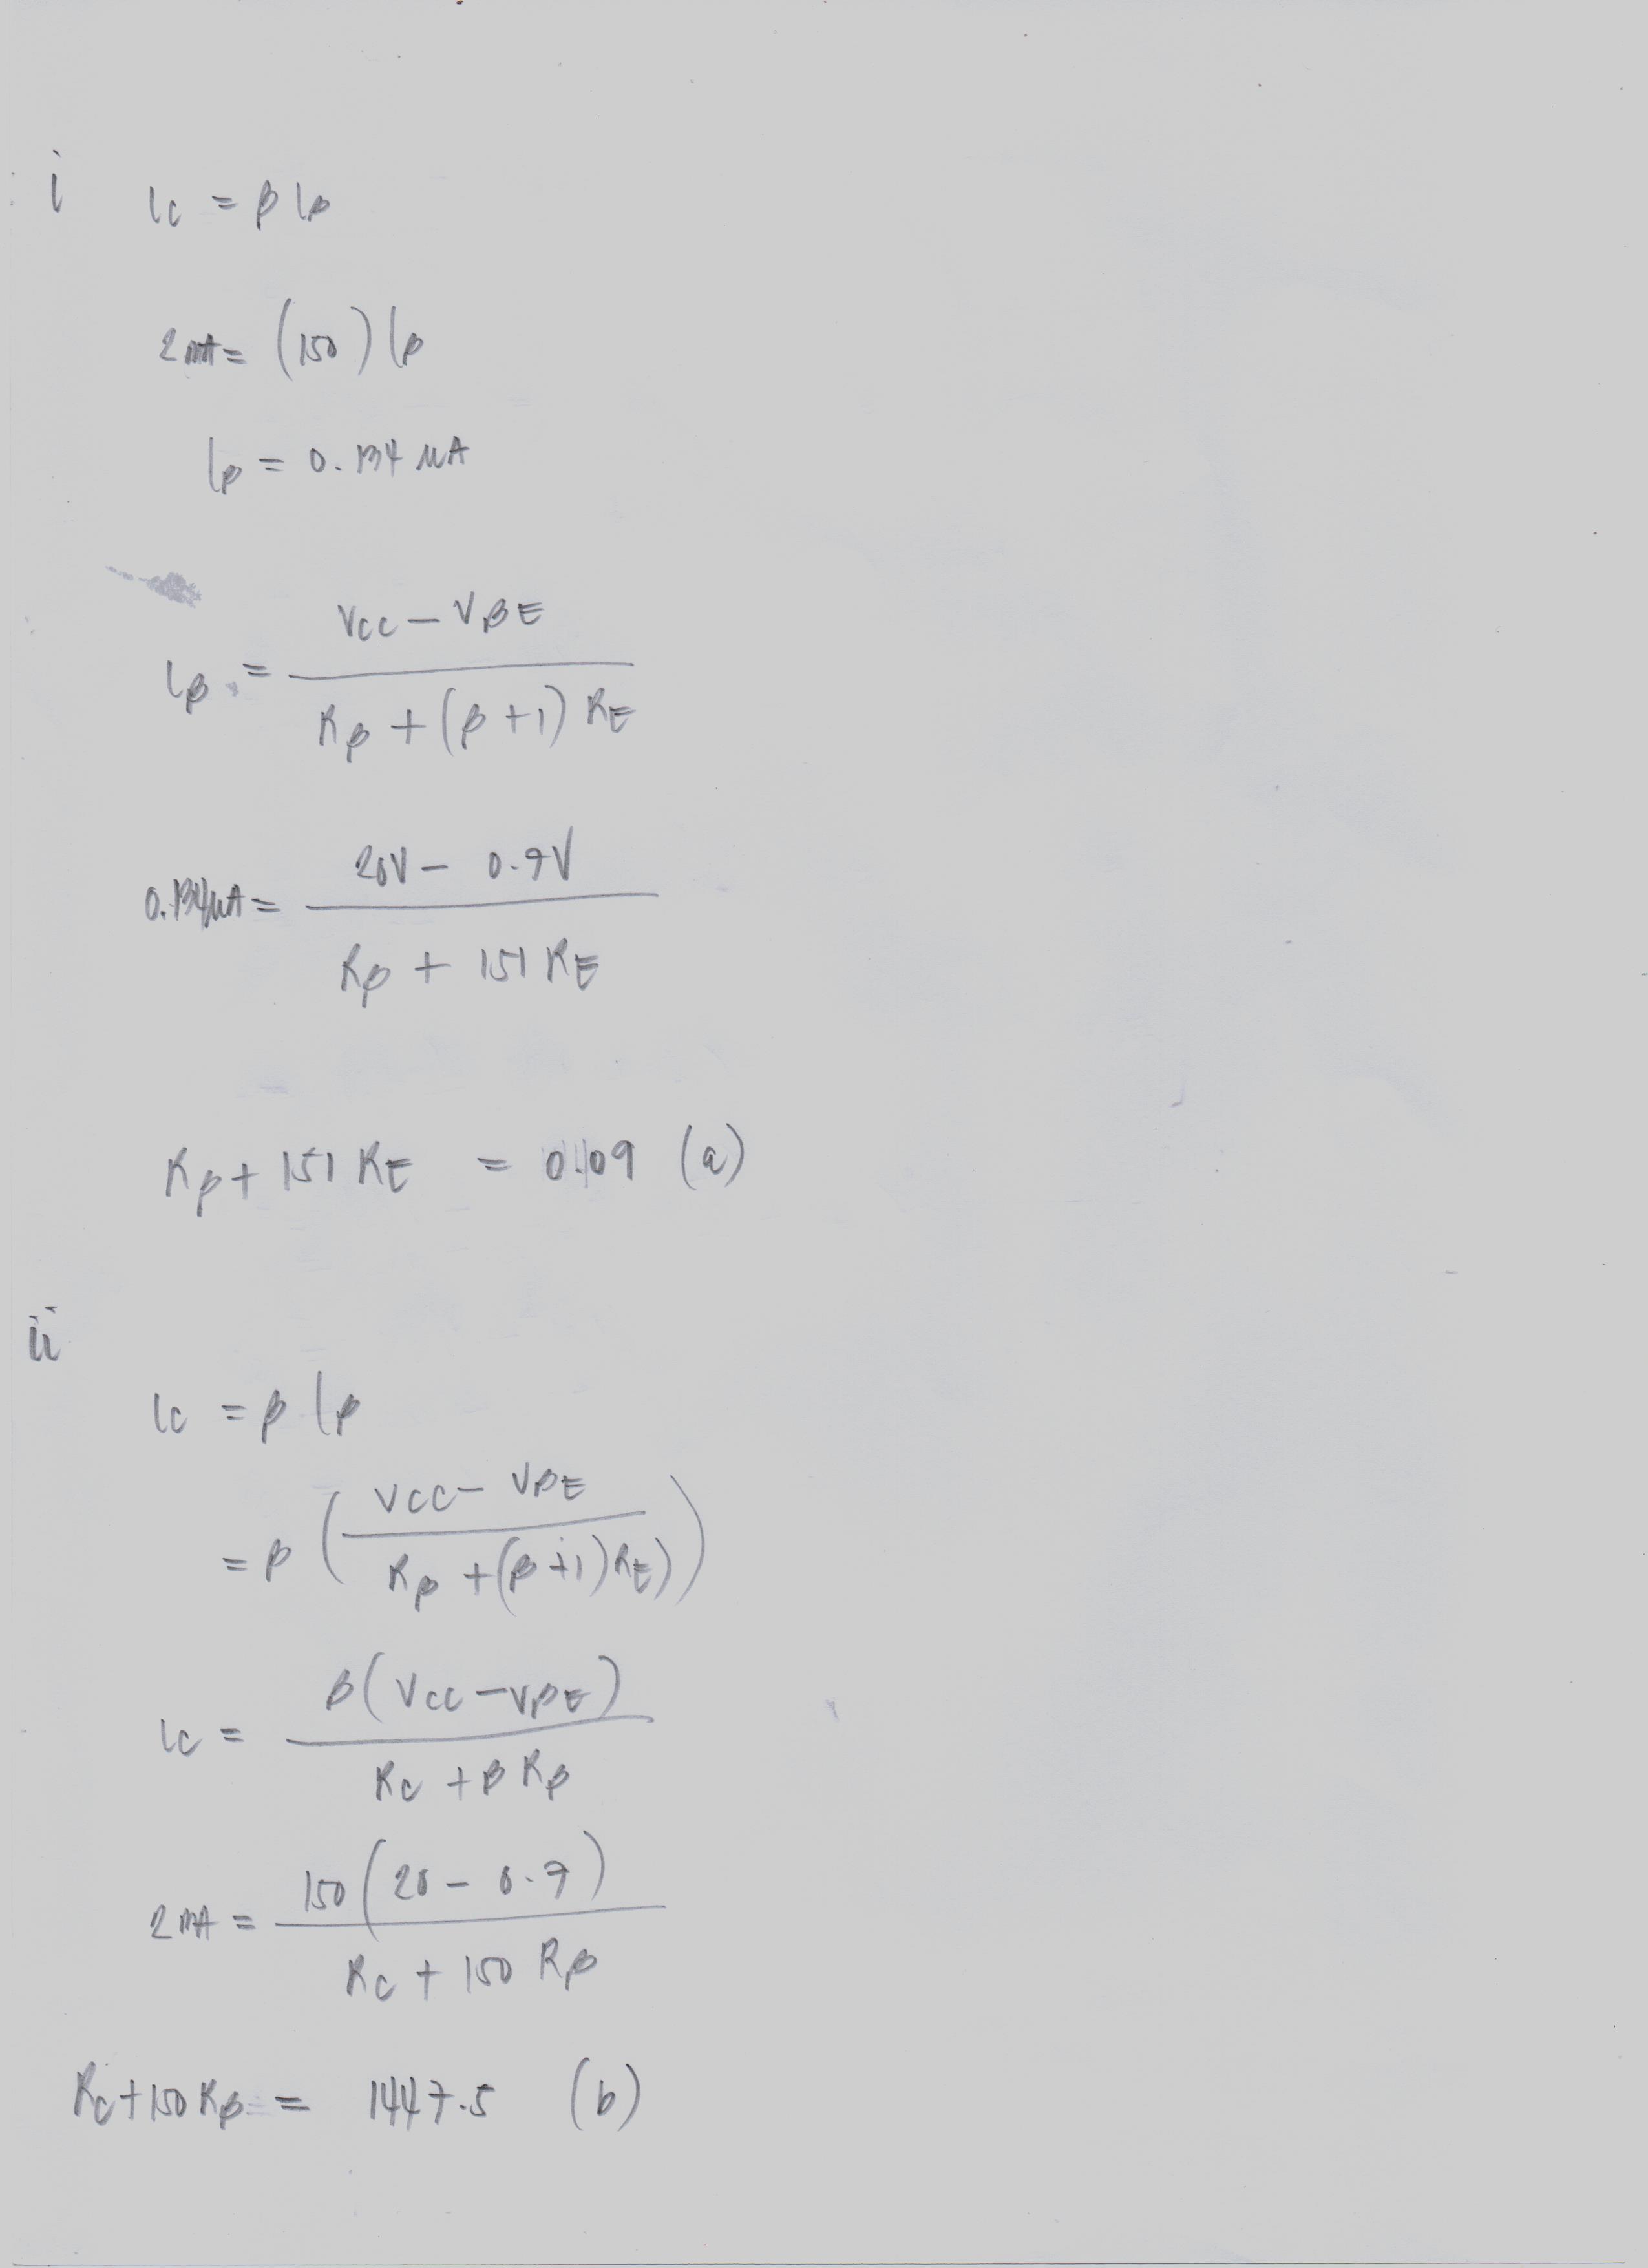 i Ic = β Iβ
2 mA = (150) Iβ
Iβ = 0.134 μA
Iβ = (Vcc - VBE) / (Rβ + (β + 1) RE)
0.134 μA = (20V - 0.7V) / (Rβ + 151 RE)
Rβ + 151 RE = 0.109 (a)
ii
Ic = β Iβ
= β ((Vcc - VBE) / (Rβ + (β + 1) RE))
Ic = β (Vcc - VBE) / (Rc + β Rβ)
2 mA = 150 (20 - 0.7) / (Rc + 150 Rβ)
Rc + 150 Rβ = 1447.5 (b)